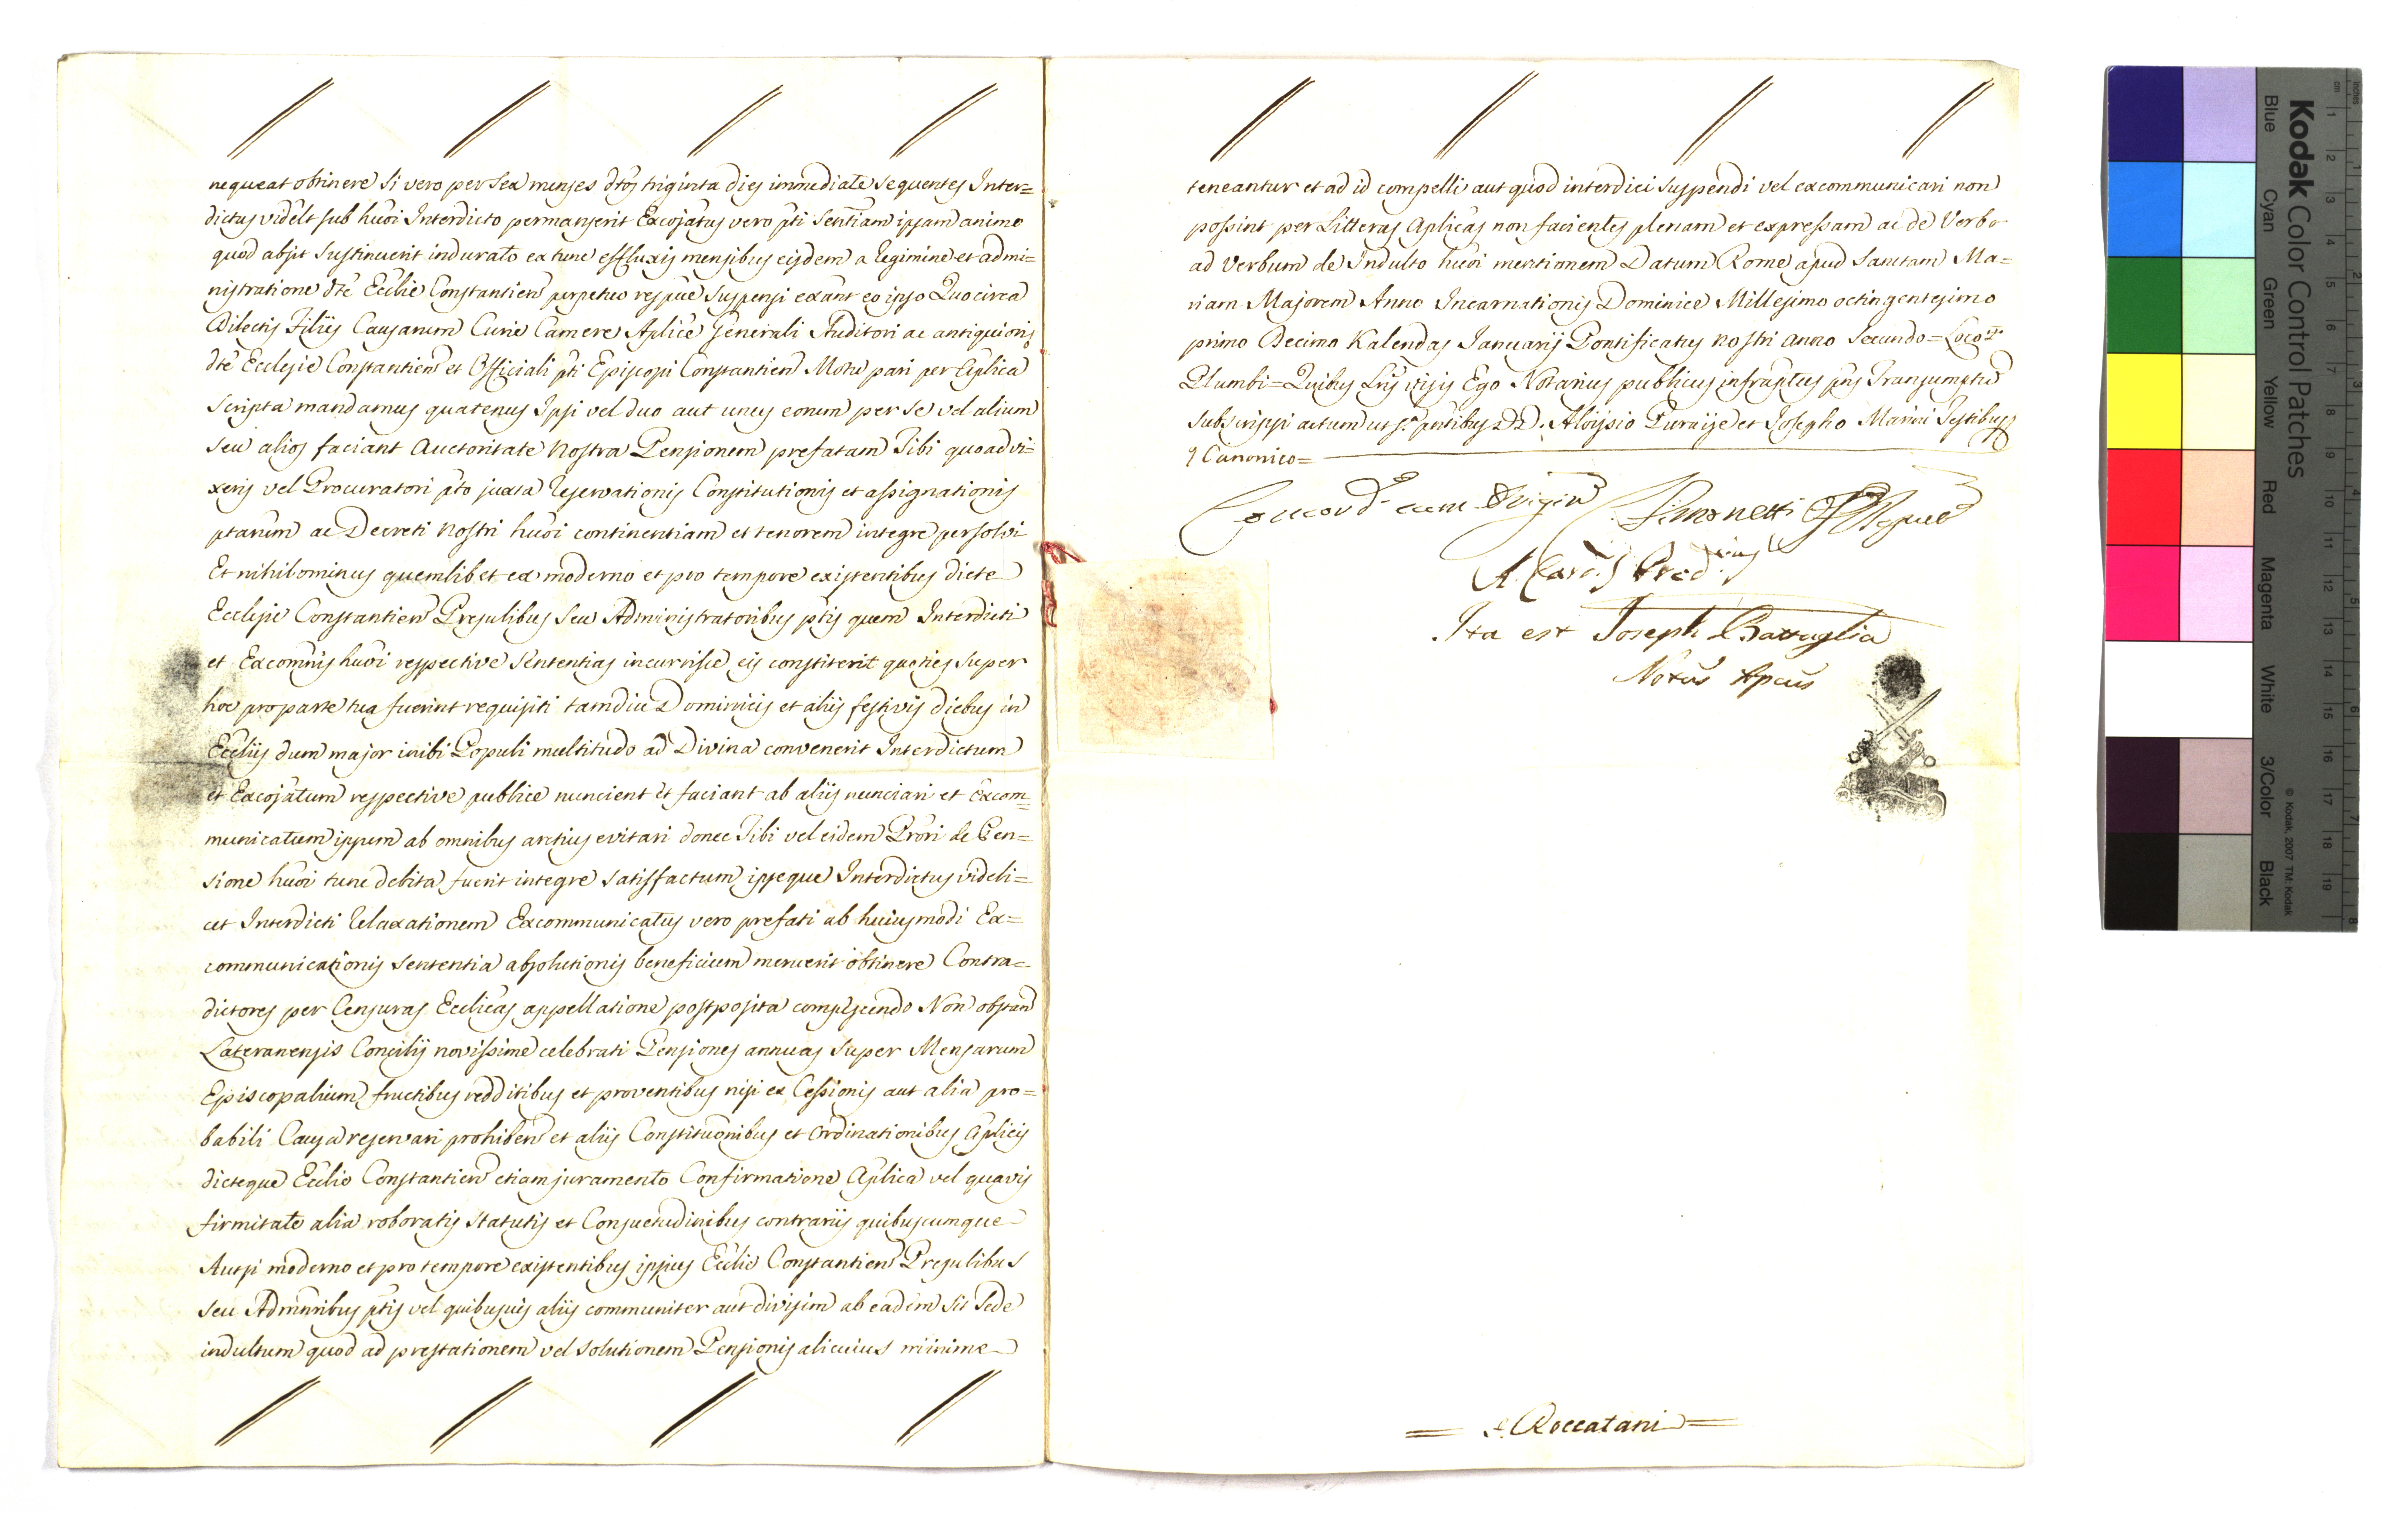 nequeat obtinere si vero per sex menses dtos triginta dies immediate sequentes Inter=
dictus vidēlt sub hūoi Interdicto permanserit Excojatus vero pti Sentiam ipsam animo
quod absit sustinuerit indurato ex tunc effluxis mensibus eisdem a Regimine et admi=
nistratione dte Ecclie Constantien perpetuo respue suspensi exānt eo ipso Quo circa
Dilectis Filiis Causarum Curie Camere Aplice Generali Auditori ac antiquioris
dte Ecclesie Constantien et Officiali pti Episcopi Constantien Motu pari per Aplica
scripta mandamus quatenus Ipsi vel duo aut unus eorum per se vel alium
seu alios faciant Auctoritate Nostra Pensionem prefatam Tibi quoad vi=
xeris vel Procuratori pto juxta Reservationis Constitutionis et assignationis
ptarum ac Decreti Nostri hūoi continentiam et tenorem integre persolvi
Et nihilominus quemlibet ex moderno et pro tempore existentibus dicte
Ecclesie Constantien Presulibus seu Administratoribus ptis quem Interdicti
et Excomnis hūoi respective Sententias incurrisse eis constiterit quoties super
hoc pro parte tua fuerint requisiti tamdiu Dominicis et aliis festivis diebus in
Eccliis dum major inibi Populi multitudo ad Divina convenerit Interdictum
et Excojatum respective publice nuncient et faciant ab aliis nunciari et Excom=
municatum ipsum ab omnibus arctius evitari donec Tibi vel eidem Prori de Pen=
sione hūoi tunc debita fuerit integre satisfactum ipseque Interdictus videli=
cet Interdicti Relaxationem Excommunicatus vero prefati ab huiusmodi Ex=
communicationis sententia absolutionis beneficium meruerit obtinere Contra=
dictores per Censuras Ecclicas appellatione postposita compescendo Non obstan
Lateranensis Concilij novissime celebrati Pensiones annuas super Mensarum
Episcopalium fructibus redditibus et proventibus nisi ex Cessionis aut alia pro=
babili Causa reservari prohiben et aliis Constitutionibus et ordinationibus Aplicis
dicteque Ecclie Constantien etiam juramento Confirmatione Aplica vel quavis
firmitate alia roboratis statutis et Consuetudinibus contrariis quibuscumque
Aut si moderno et pro tempore existentibus ipsius Ecclie Constantien Presulibus
seu Adminribus ptis vel quibusvis aliis communiter aut divisim ab eadem sit Sede
indultum quod ad prestationem vel solutionem Pensionis alicuius minime
teneantur et ad id compelli aut quod interdici suspendi vel excommunicari non
possint per Litteras Aplicas non facientes plenam et expressam ac de Verbo
ad Verbum de Indulto hūoi mentionem Datum Rome apud Sanctam Ma=
riam Majorem Anno Incarnationis Dominice Millesimo octingentesimo
primo Decimo Kalendas Januarij Pontificatus nostri anno Secundo = Loco
Plumbi = Quibus Lris visis Ego Notarius publicus infraptus pns Transumptum
subscripsi actum ut sa pntibus DD. Aloysio et Josepho Marini Testibus
Canonico =
Concord cum Origin Simonetti
A. Card. Prod.
Ita est Joseph Battaglia
Notus Apcus
= Roccatani =
Kodak Color Control Patches
Blue Cyan Green Yellow Red Magenta White 3/Color Black
© Kodak, 2007 TM: Kodak
inches 1 2 3 4 5 6 7 8
cm 1 2 3 4 5 6 7 8 9 10 11 12 13 14 15 16 17 18 19